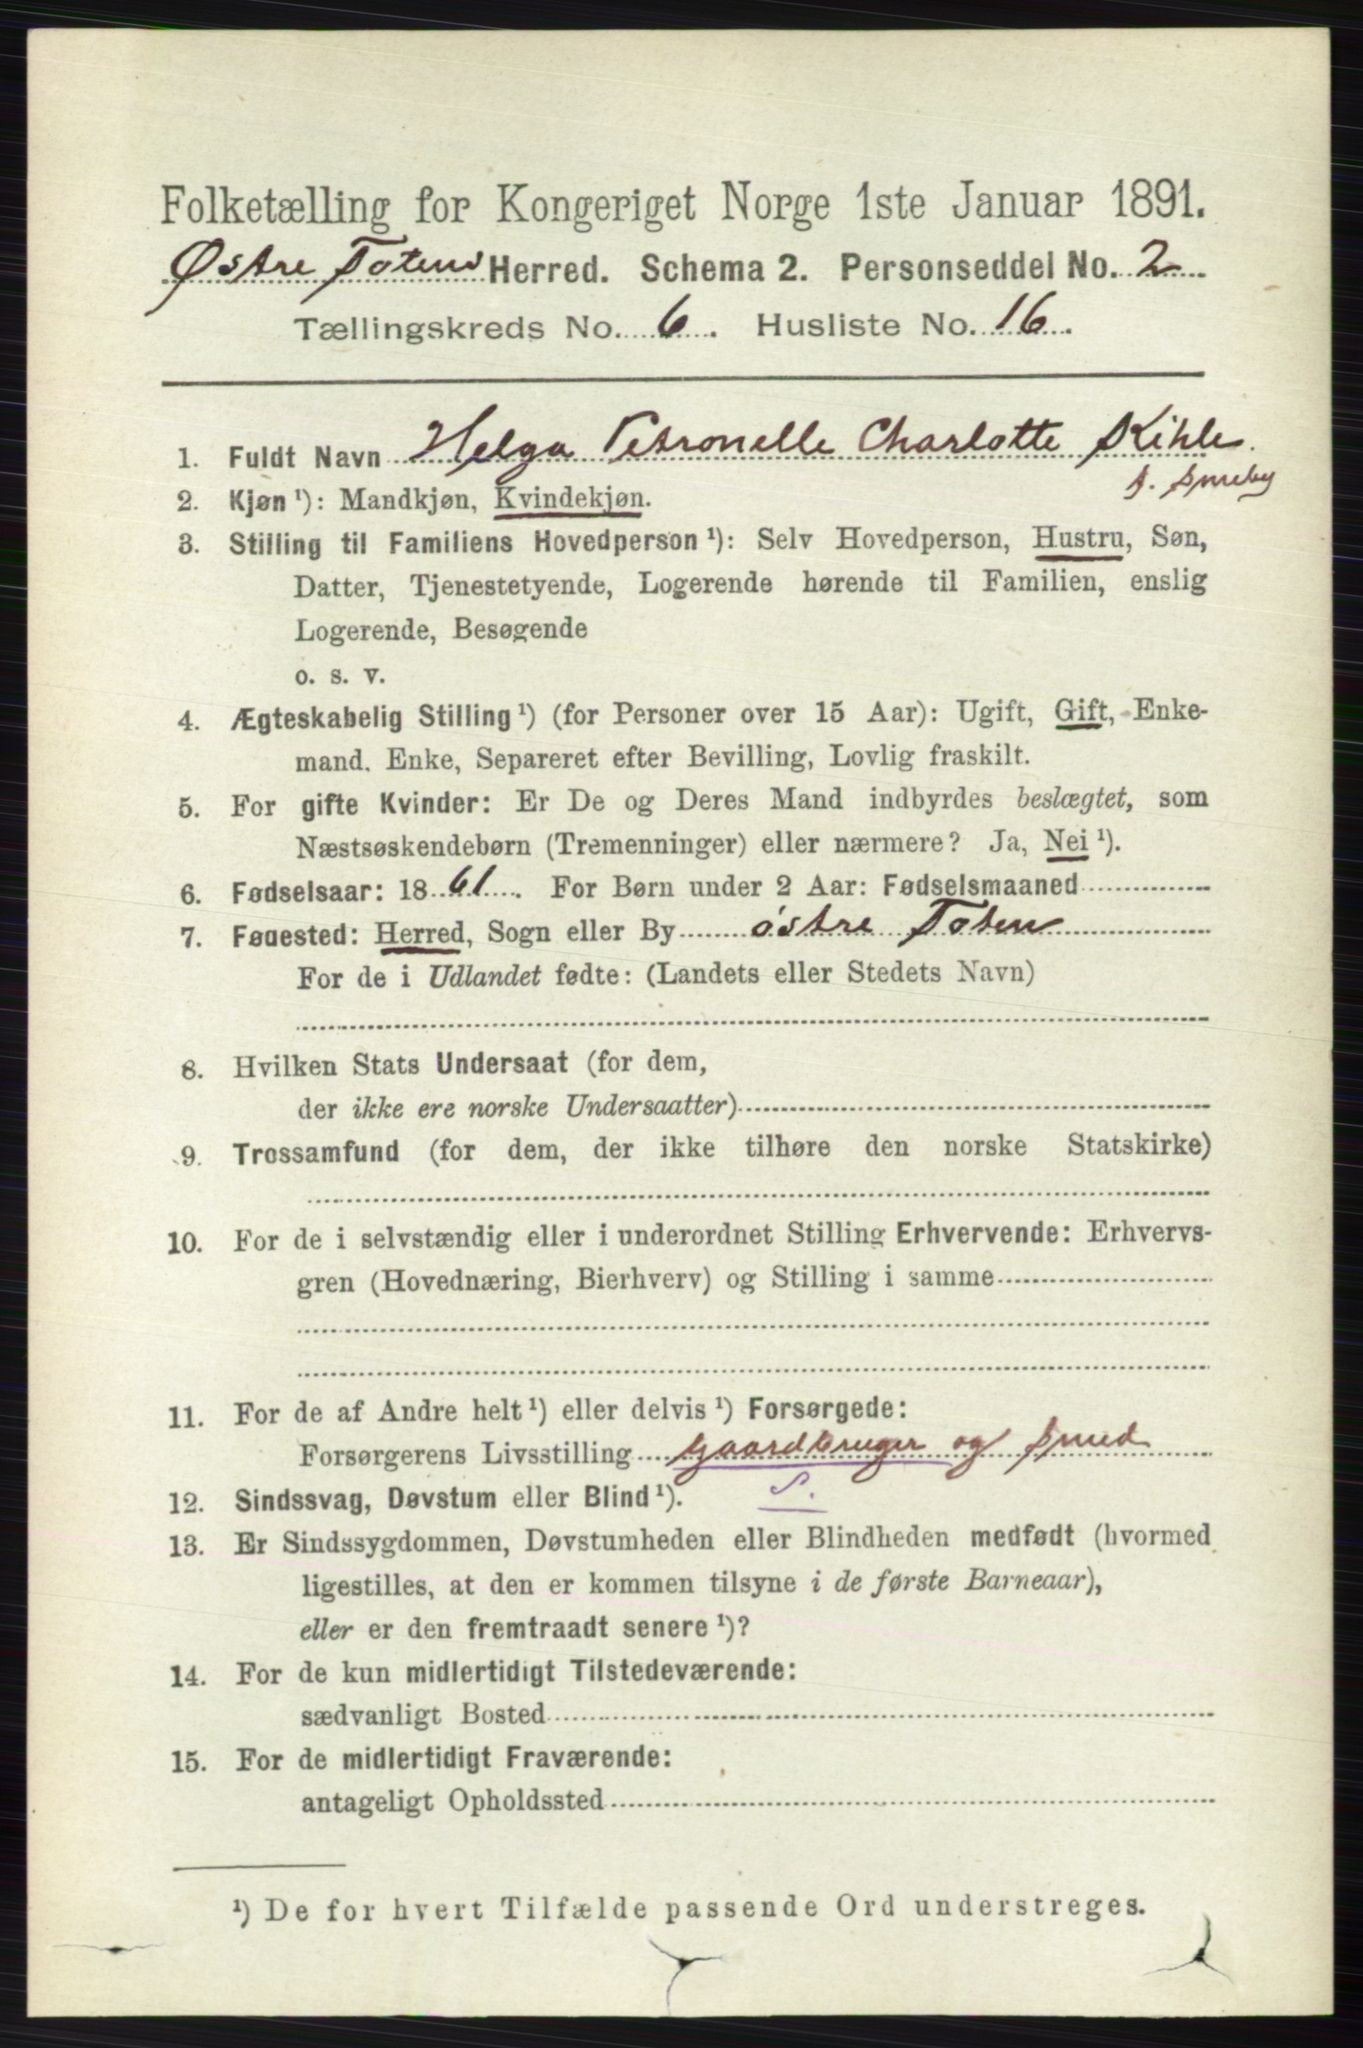 Folketælling for Kongeriget Norge 1ste Januar 1891.
Østre Totens Herred. Schema 2. Personseddel No. 2
Tællingskreds No. 6. Husliste No. 16.
1. Fuldt Navn Helga Petronelle Charlotte Kihle.
2. Kjøn ¹): Mandkjøn, Kvindekjøn.
3. Stilling til Familiens Hovedperson ¹): Selv Hovedperson, Hustru, Søn,
Datter, Tjenestetyende, Logerende hørende til Familien, enslig
Logerende, Besøgende
o. s. v.
4. Ægteskabelig Stilling ¹) (for Personer over 15 Aar): Ugift, Gift, Enke-
mand. Enke, Separeret efter Bevilling, Lovlig fraskilt.
5. For gifte Kvinder: Er De og Deres Mand indbyrdes beslægtet, som
Næstsøskendebørn (Tremenninger) eller nærmere? Ja, Nei ¹).
6. Fødselsaar: 1861. For Børn under 2 Aar: Fødselsmaaned
7. Føuested: Herred, Sogn eller By østre Toten
For de i Udlandet fødte: (Landets eller Stedets Navn)
8. Hvilken Stats Undersaat (for dem,
der ikke ere norske Undersaatter)
9. Trossamfund (for dem, der ikke tilhøre den norske Statskirke)
10. For de i selvstændig eller i underordnet Stilling Erhvervende: Erhvervs-
gren (Hovednæring, Bierhverv) og Stilling i samme
11. For de af Andre helt ¹) eller delvis ¹) Forsørgede:
Forsørgerens Livsstilling Gaardbruger og Smed
S.
12. Sindssvag, Døvstum eller Blind ¹).
13. Er Sindssygdommen, Døvstumheden eller Blindheden medfødt (hvormed
ligestilles, at den er kommen tilsyne i de første Barneaar),
eller er den fremtraadt senere ¹)?
14. For de kun midlertidigt Tilstedeværende:
sædvanligt Bosted
15. For de midlertidigt Fraværende:
antageligt Opholdssted
¹) De for hvert Tilfælde passende Ord understreges.